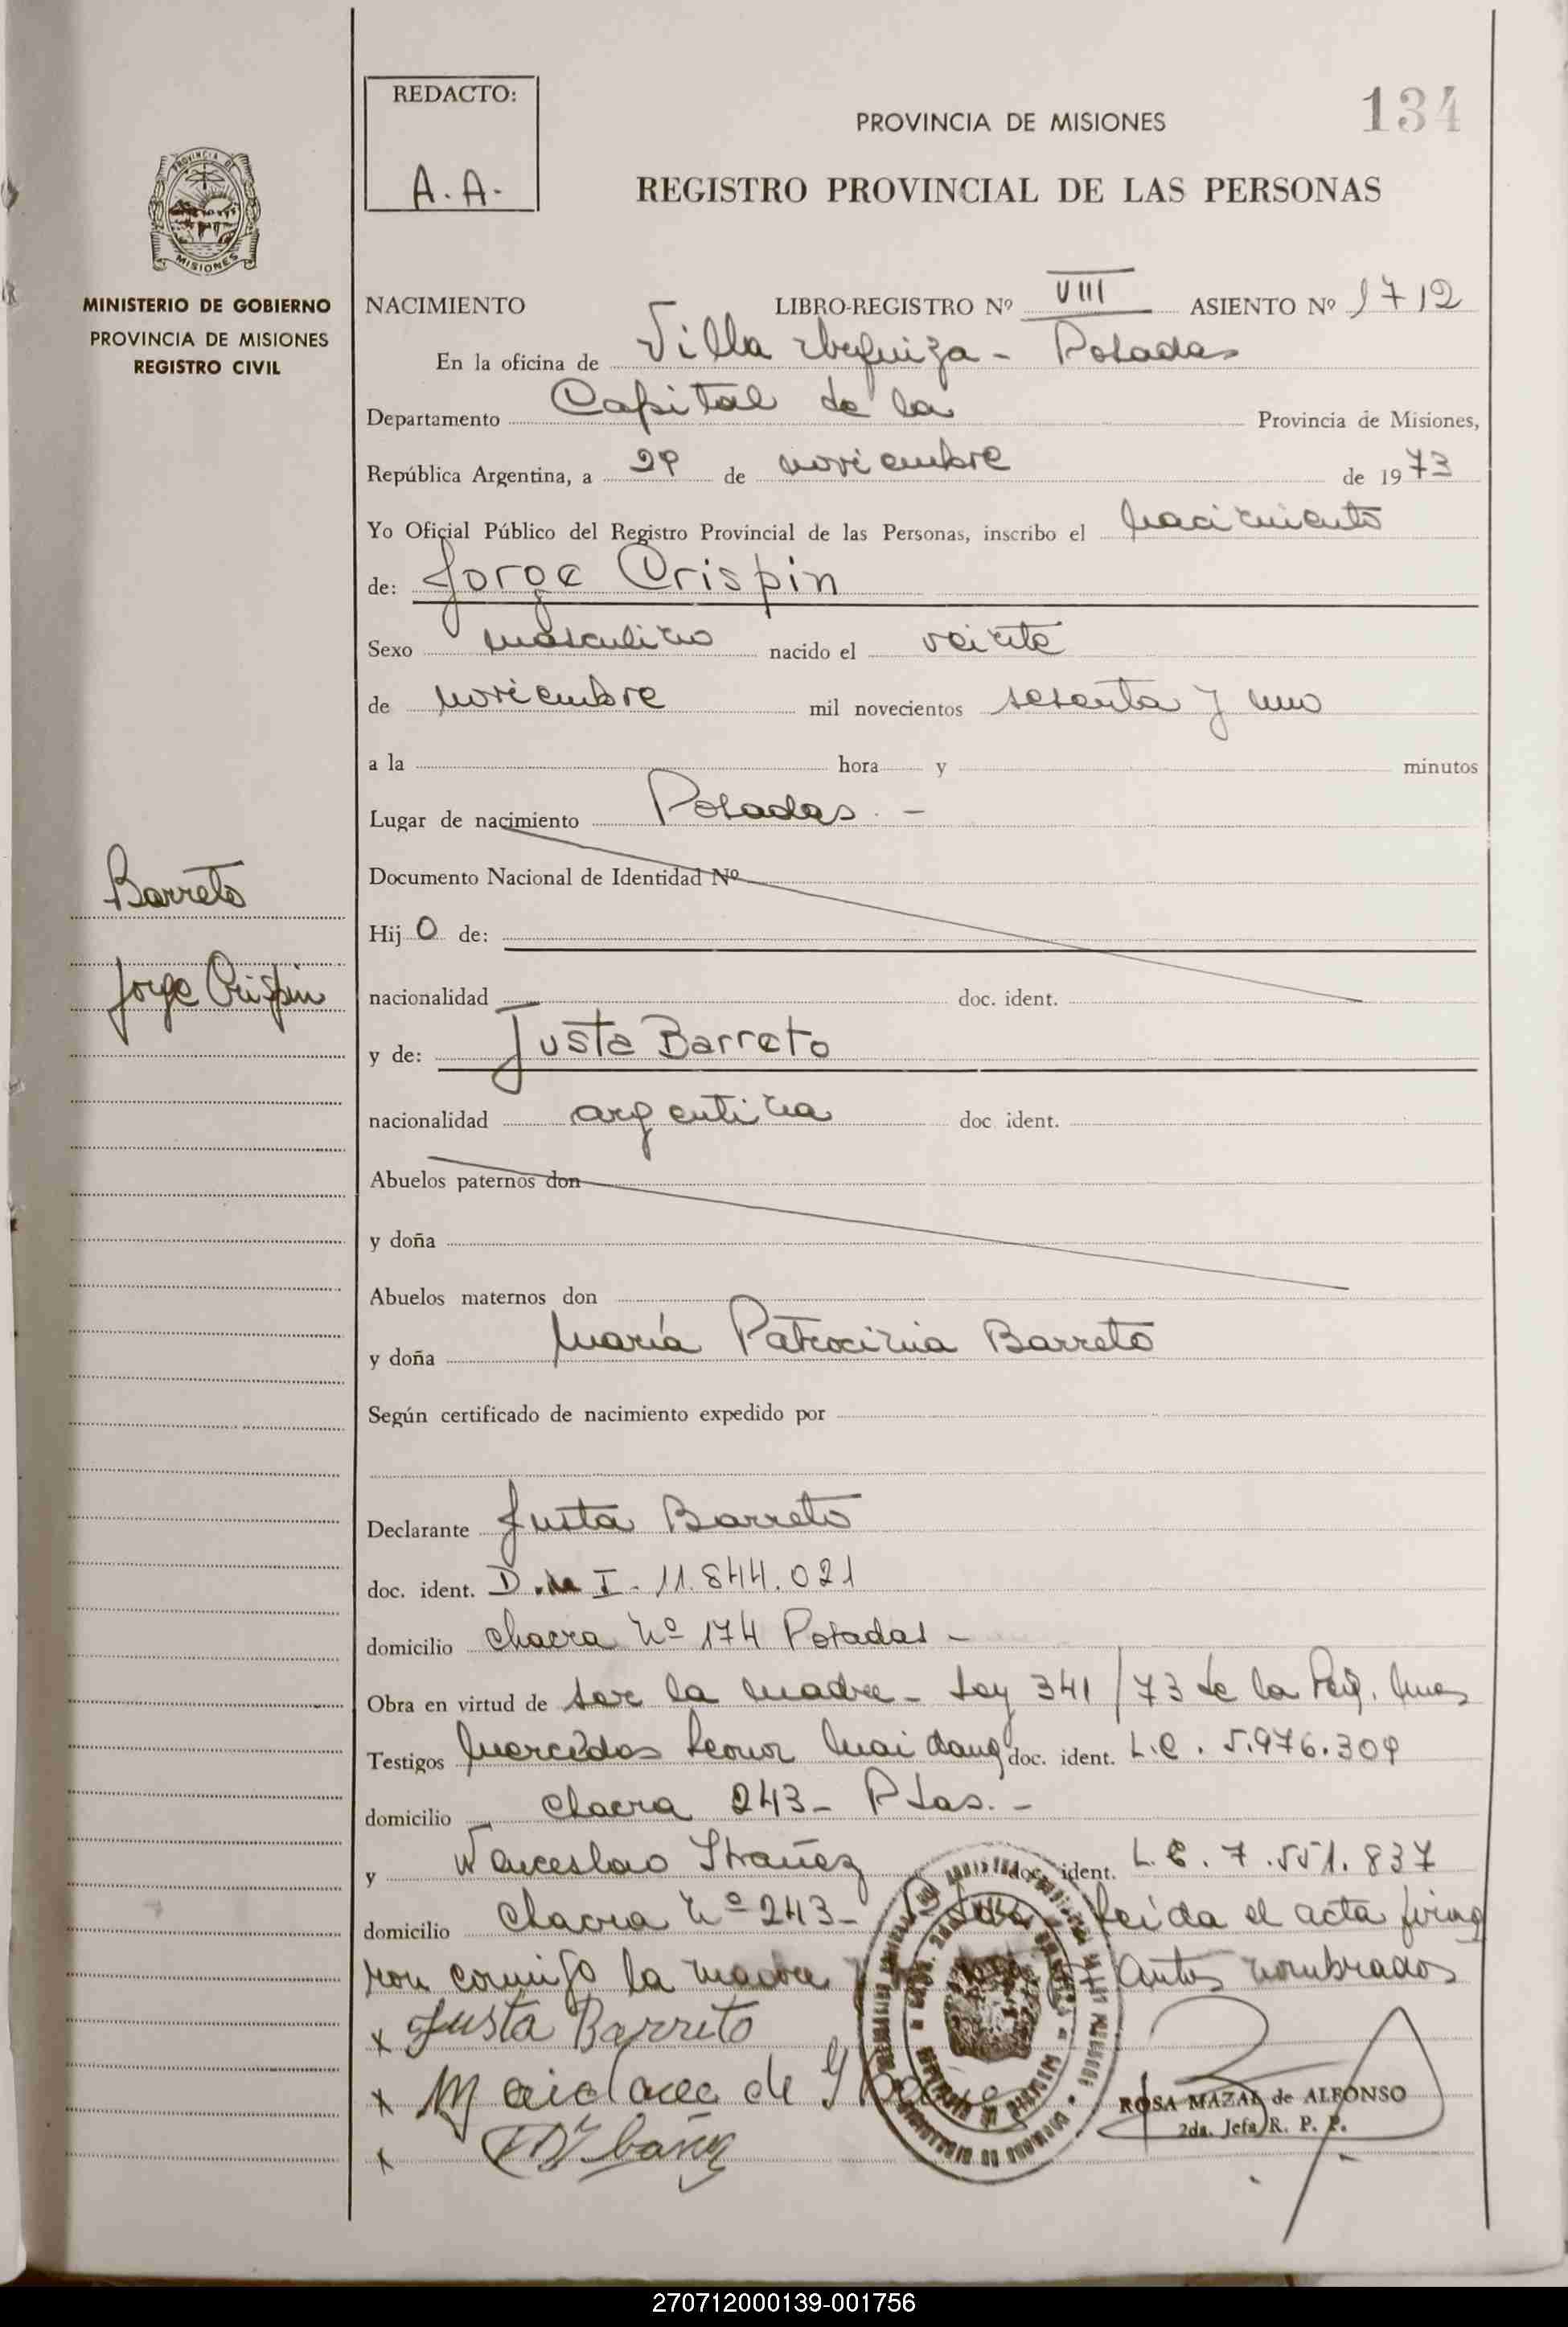 REDACTO:
A. A.
134
PROVINCIA DE MISIONES
REGISTRO PROVINCIAL DE LAS PERSONAS
PROVINCIA DE
MISIONES
MINISTERIO DE GOBIERNO
PROVINCIA DE MISIONES
REGISTRO CIVIL
NACIMIENTO LIBRO-REGISTRO Nº VIII ASIENTO Nº 1712
En la oficina de Villa Urquiza - Posadas
Departamento Capital de la Provincia de Misiones,
República Argentina, a 29 de noviembre de 1973
Yo Oficial Público del Registro Provincial de las Personas, inscribo el nacimiento
de: Jorge Crispin
Sexo masculino nacido el veinte
de noviembre mil novecientos sesenta y uno
a la hora y minutos
Lugar de nacimiento Posadas. -
Documento Nacional de Identidad Nº
Barreto
Hij o de:
Jorge Crispin
nacionalidad doc. ident.
y de: Justa Barreto
nacionalidad argentina doc ident.
Abuelos paternos don
y doña
Abuelos maternos don
y doña María Patrocinia Barreto
Según certificado de nacimiento expedido por
Declarante Justa Barreto
doc. ident. D. I. 11.844.021
domicilio chacra Nº 174 Posadas -
Obra en virtud de ser la madre - Ley 341/73 de la
Testigos Mercedes Leonor Maidana doc. ident. L.C. 5.976.309
domicilio chacra 243 - Pdas. -
y Wenceslao Ibañez doc. ident. L.E. 7.551.837
domicilio Chacra Nº 243 - Leída el acta firma
ron conmigo la madre antes nombrados
x Justa Barreto
x Maidana de
x Ibañez
ROSA MAZAL de ALFONSO
2da. Jefa R. P. P.
270712000139-001756